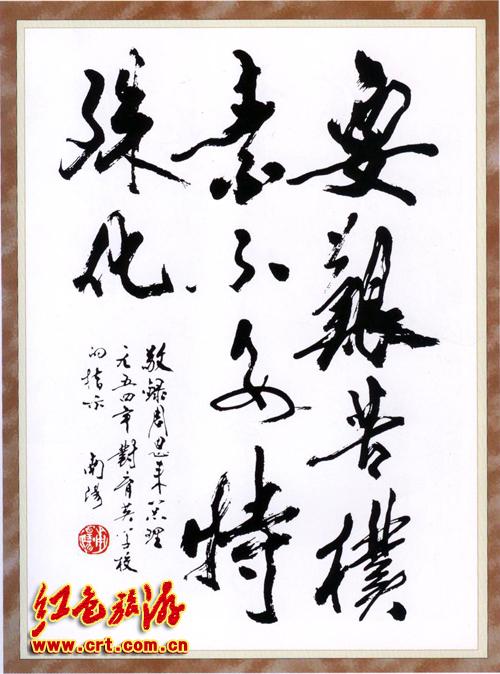 要艱苦樸
素不要特
殊化
敬録周恩来总理
一九五四年對育英学校
的指示
红色旅游
www.crt.com.cn